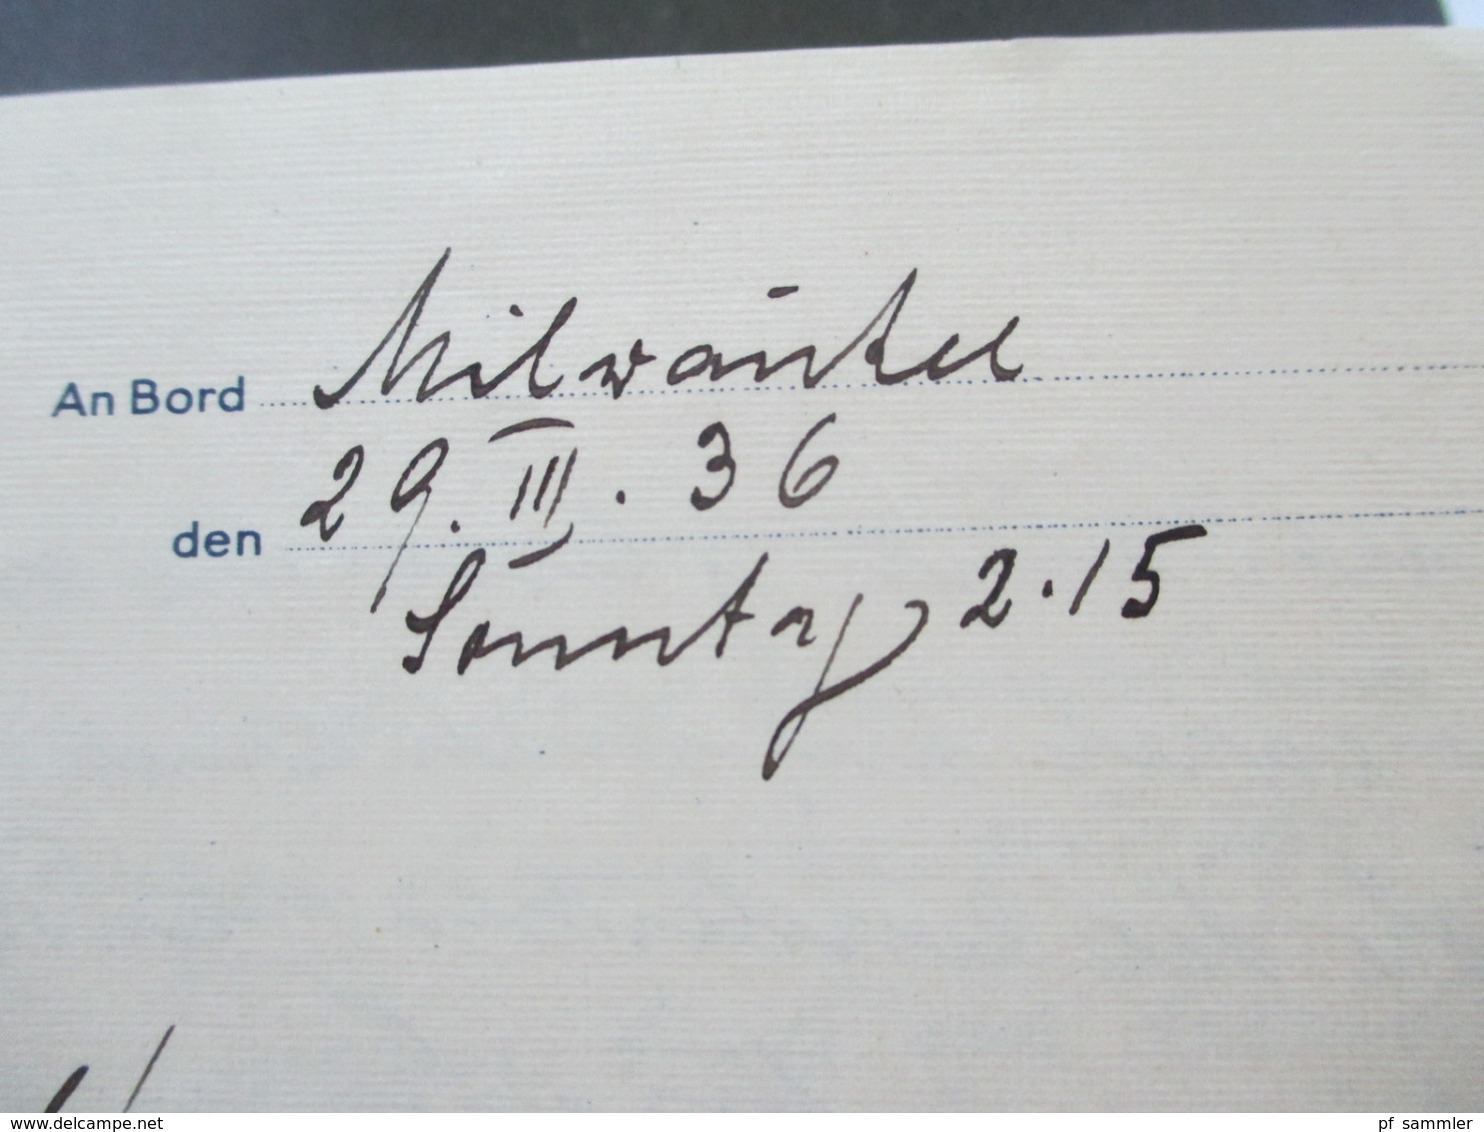 An Bord Milwaukee
den 29. III. 36
Sonntag 2.15
www.delcampe.net
pf_sammler